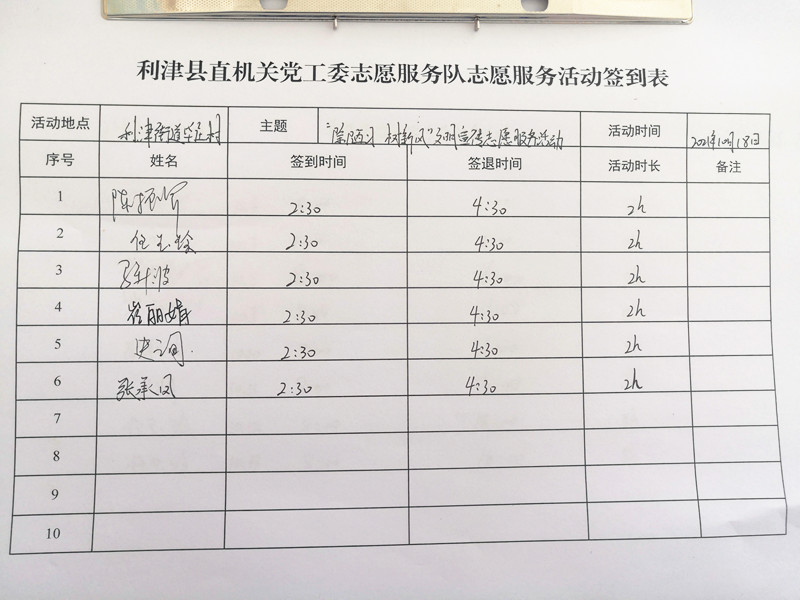 利津县直机关党工委志愿服务队志愿服务活动签到表
活动地点 利津街道庄村 主题 “除陋习 树新风”文明宣传志愿服务活动 活动时间 2021年10月18日
序号 姓名 签到时间 签退时间 活动时长 备注
1 2:30 4:30 2h
2 2:30 4:30 2h
3 2:30 4:30 2h
4 崔丽娟 2:30 4:30 2h
5 2:30 4:30 2h
6 张承凤 2:30 4:30 2h
7
8
9
10